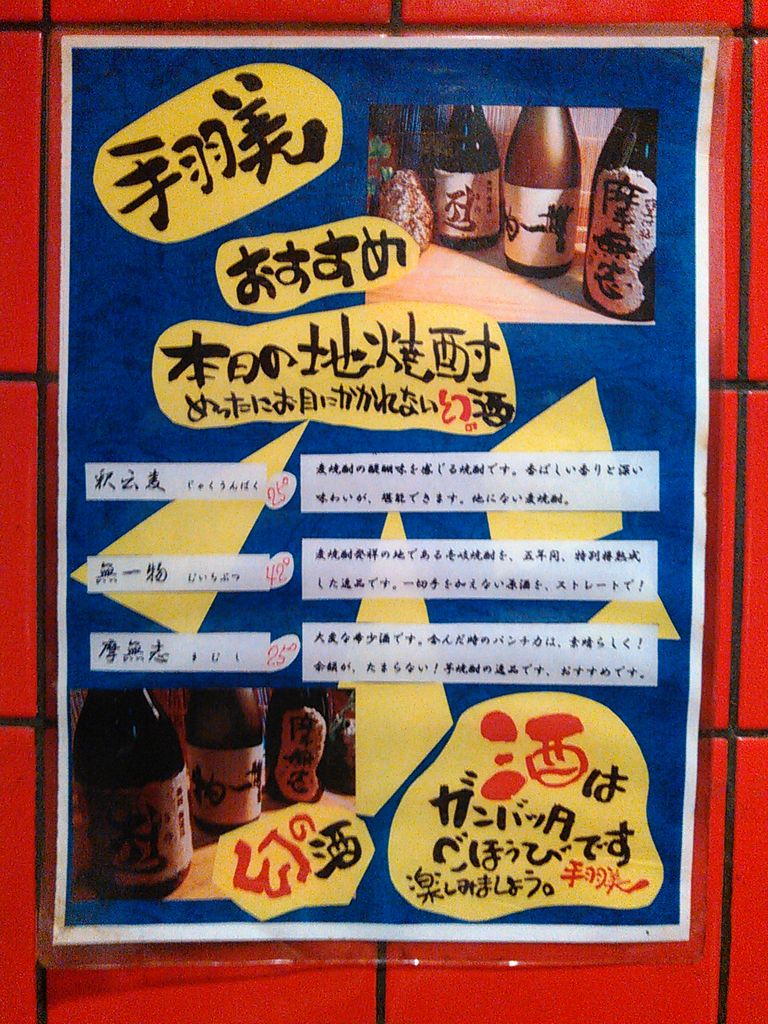 手羽美
おすすめ
本日の地焼酎
めったにお目にかかれない幻の酒
釈云麦 じゃくうんばく 250
麦焼酎の醍醐味を感じる焼酎です。香ばしい香りと深い
味わいが、堪能できます。他にない麦焼酎。
無一物 むいちぶつ 420
麦焼酎発祥の地である壱岐焼酎を、五年間、特別樽熟成
した逸品です。一切手を加えない原酒を、ストレートで!
摩無志 まむし 250
大変な希少酒です。含んだ時のパンチ力は、素晴らしく!
余韻が、たまらない!芋焼酎の逸品です、おすすめです。
摩無志
無一物
摩無志
幻の酒
酒は
ガンバッタ
ごほうびです
楽しみましょう。手羽美